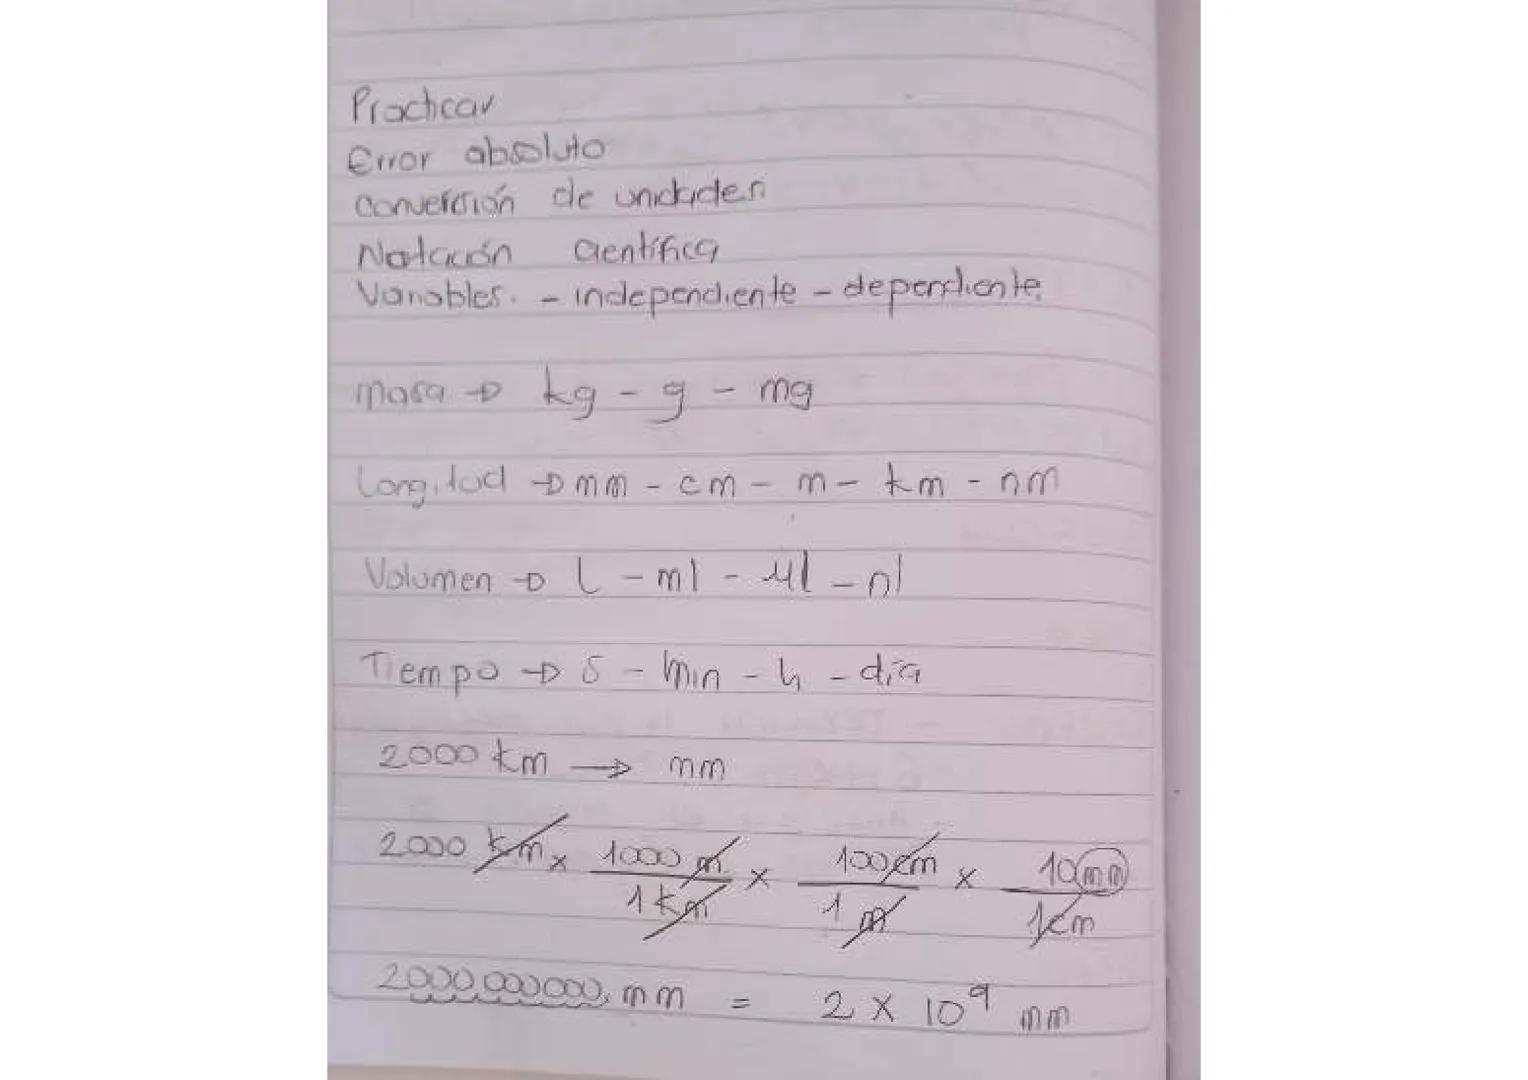 Practicar
Error absoluto
Conversión de unidades
Notación Científica
Variables. - independiente - dependiente.
Masa → kg - g - mg
Longitud → mm - cm - m - km - nm
Volumen → l - ml - µl - nl
Tiempo → s - min - h - día
2000 km → mm
2000 km x 1000 m / 1 km x 100 cm / 1 m x 10 mm / 1 cm
2000.000000, mm = 2 x 10⁹ mm